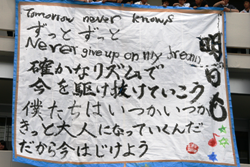 明日も
tomorrow never knows
ずっと ずっと
Never give up on my dream
確かなリズムで
今を駆け抜けていこう
僕たちは いつかいつか
きっと大人になっていくんだ
だから今はじけよう